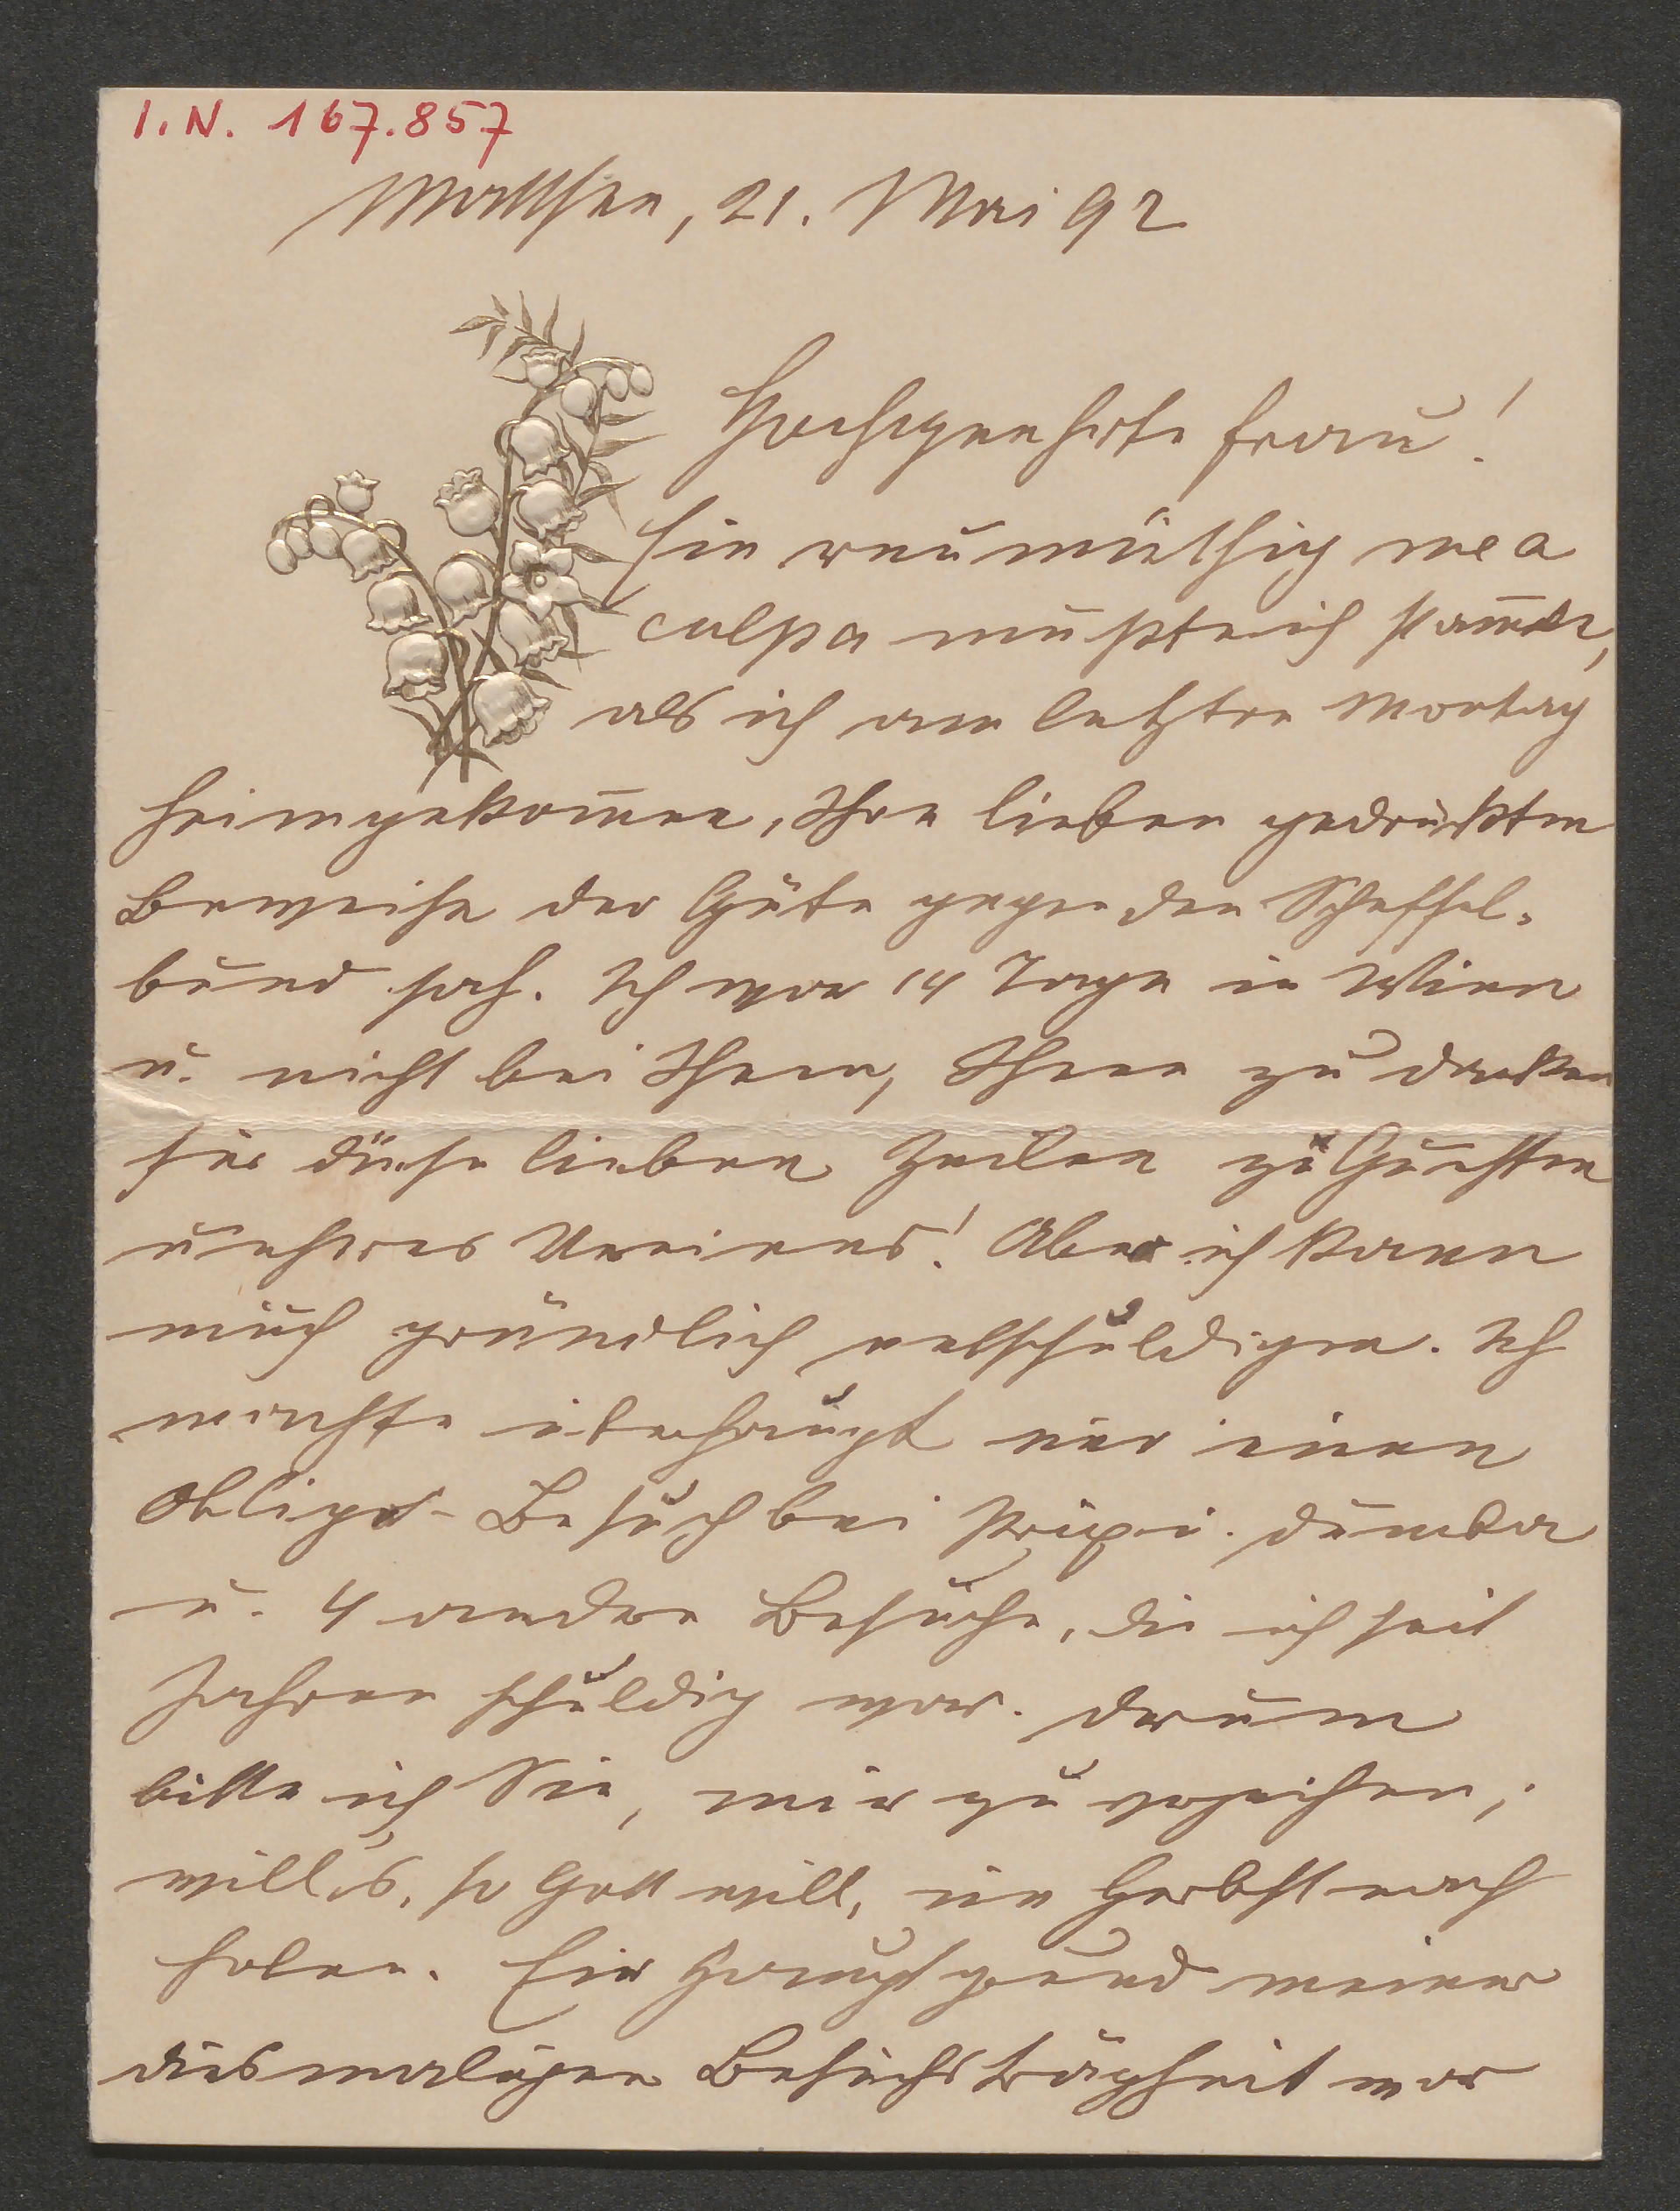 I. N. 167.857
Mattsee, 21. Mai 92
Hochgeehrte Frau!
Ein reumüthig mea
culpa mußte ich stam̄eln,
als ich am letzten Montag
heimgekom̄en, Ihre lieben gedruckten
Beweise der Güte gegen den Scheffel-
bund sah. Ich war 14 Tage in Wien
u. nicht bei Ihnen, Ihnen zu danken
für diese lieben Zeilen zu Gunsten
unseres Vereines! Aber ich kann
mich gründlich entschuldigen. Ich
machte überhaupt nur einen
Obligat-Besuch bei Dumba
u. 4 andere Besuche, die ich seit
Jahren schuldig war. Drum
bitte ich Sie, mir zu verzeihen;
will's, so Gott will, im Herbst nach
holen. Ein Hauptgrund meiner
diesmaligen Besuchsträgheit war